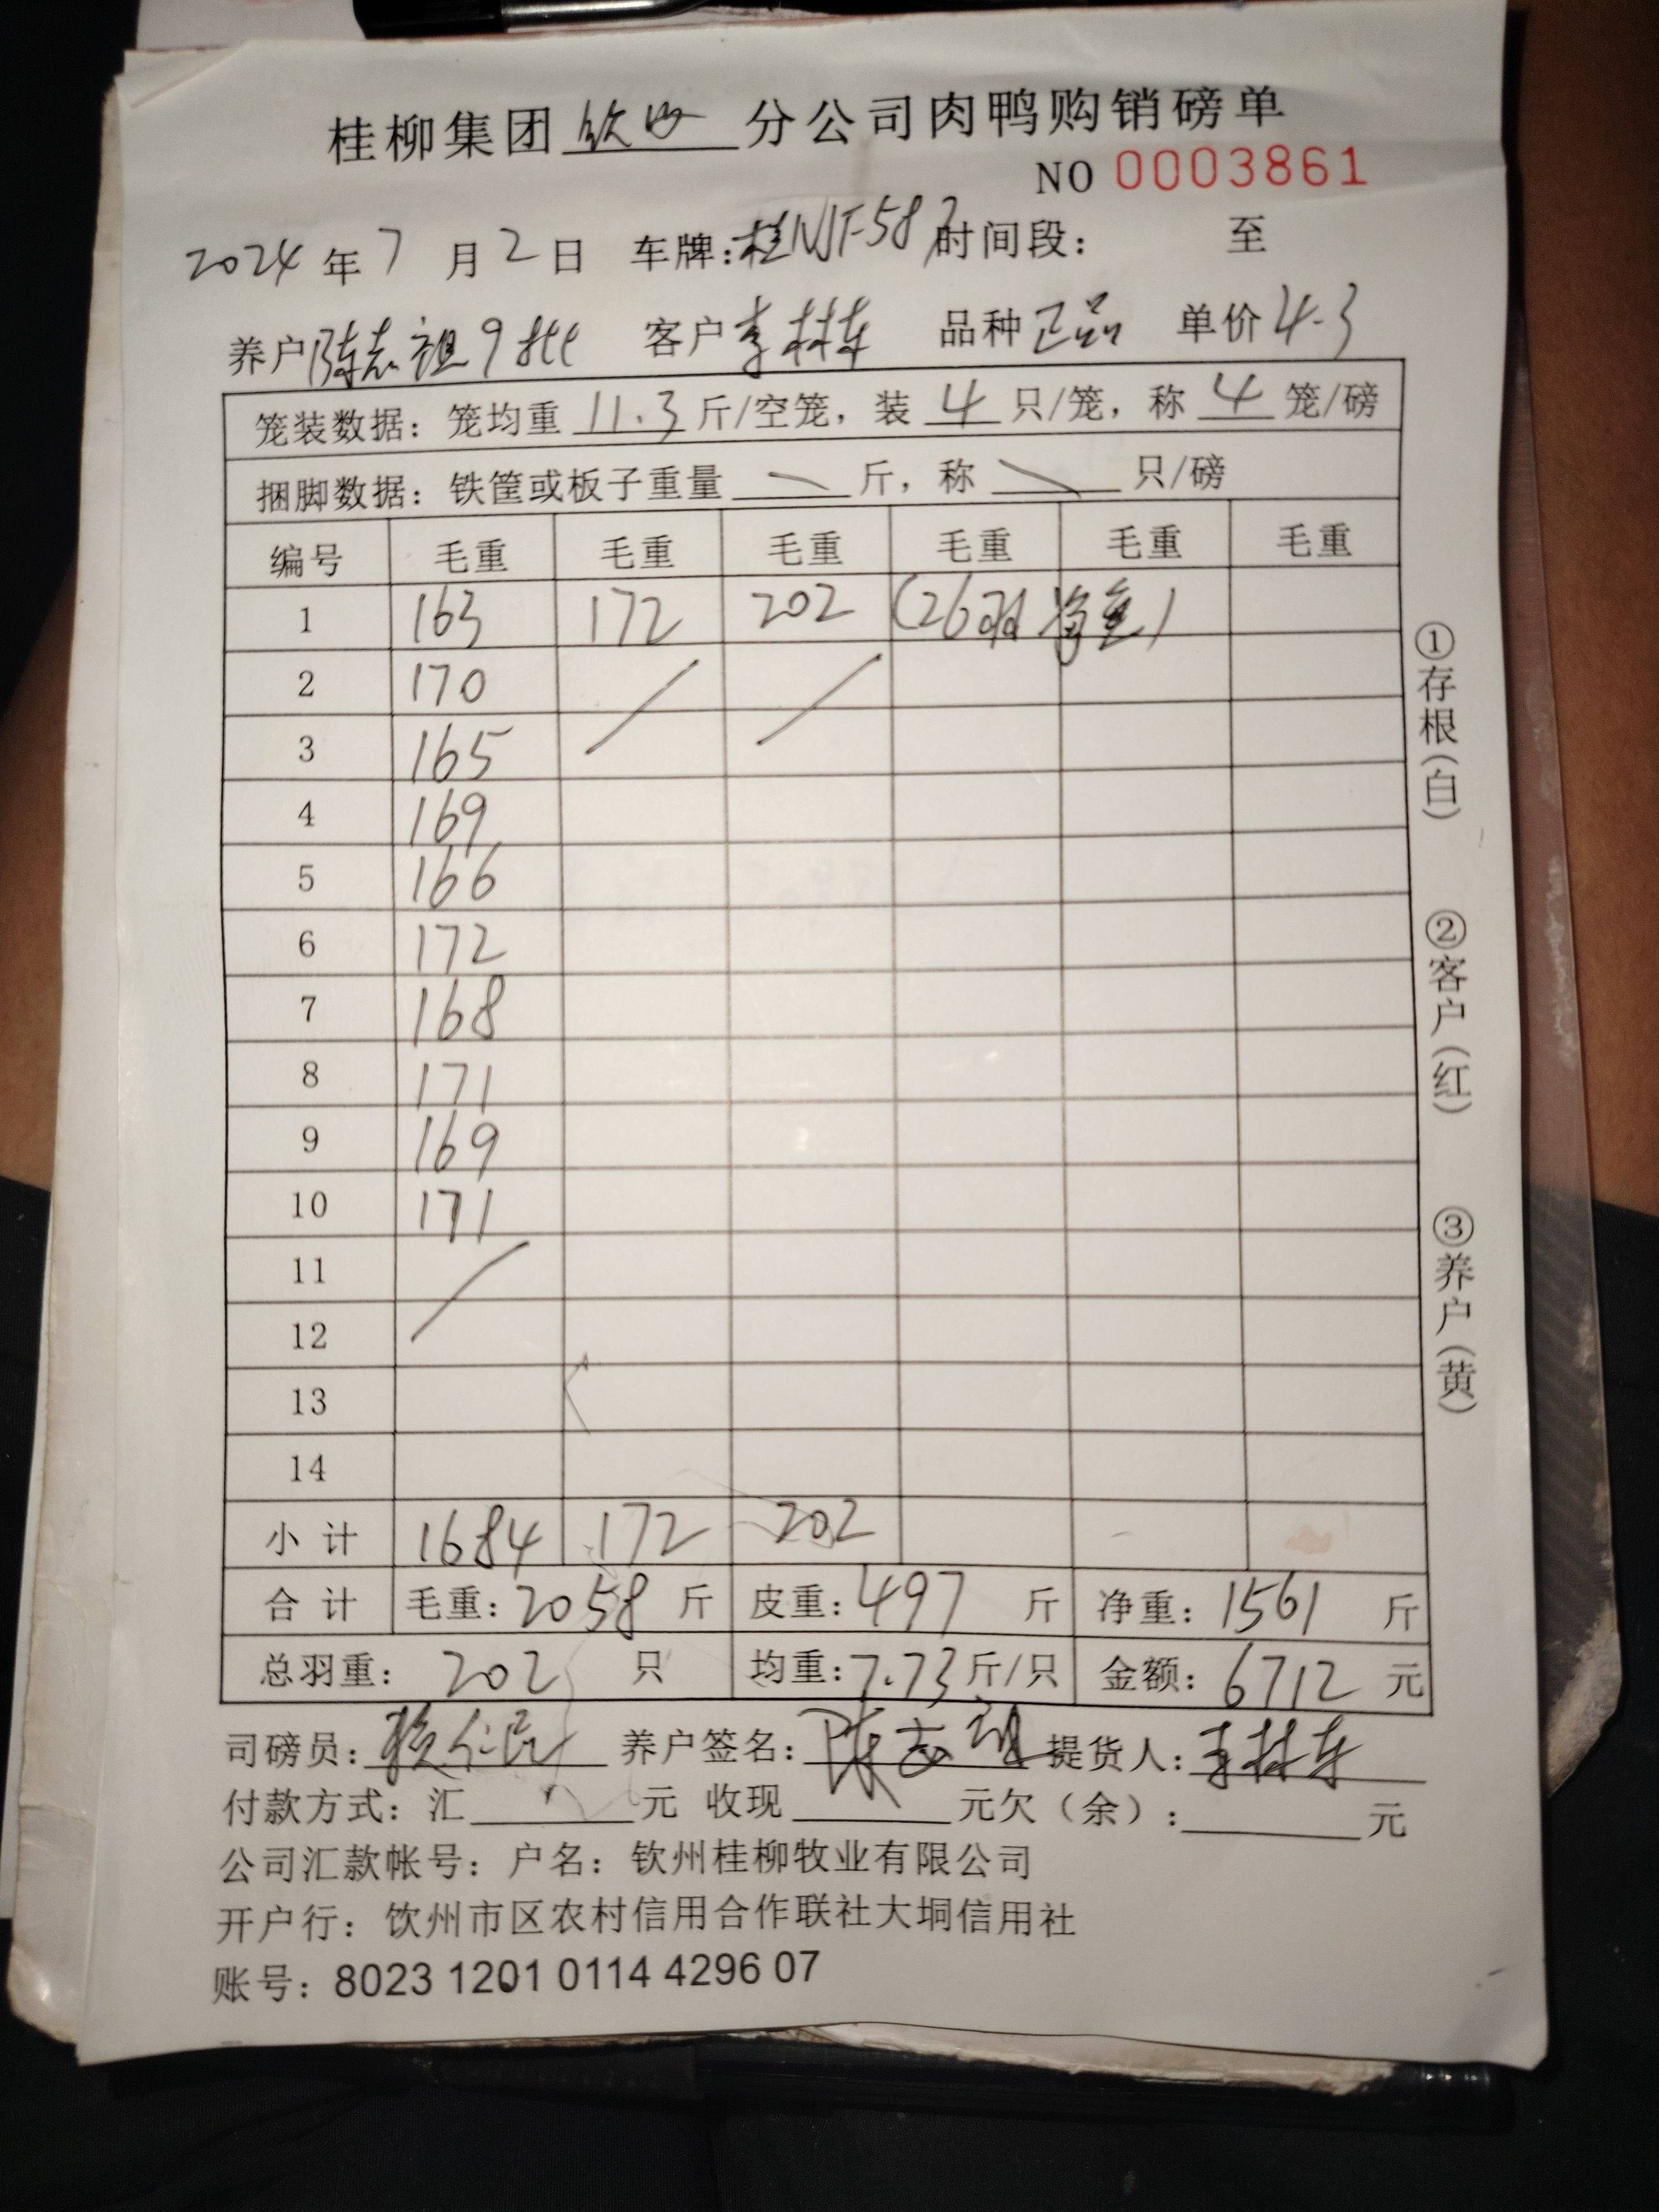 桂柳集团 钦州 分公司肉鸭购销磅单
NO 0003861
2024 年 7 月 2 日 车牌:桂NJF-587 时间段: 至
养户 陈志祖9批 客户 李林东 品种 正品 单价 4.3
笼装数据: 笼均重 11.3 斤/空笼, 装 4 只/笼, 称 4 笼/磅
捆脚数据: 铁筐或板子重量 斤, 称 只/磅
编号 毛重 毛重 毛重 毛重 毛重 毛重
1 163 172 202 (26羽 净重)
2 170
3 165
4 169
5 166
6 172
7 168
8 171
9 169
10 171
11
12
13
14
小计 1684 172 202
合计 毛重: 2058 斤 皮重: 497 斤 净重: 1561 斤
总羽重: 202 只 均重: 7.73 斤/只 金额: 6712 元
司磅员: 养户签名: 陈志祖 提货人: 李林东
付款方式: 汇 元 收现 元欠(余): 元
公司汇款帐号: 户名: 钦州桂柳牧业有限公司
开户行: 钦州市区农村信用合作联社大垌信用社
账号: 8023 1201 0114 4296 07
①存根(白)
②客户(红)
③养户(黄)